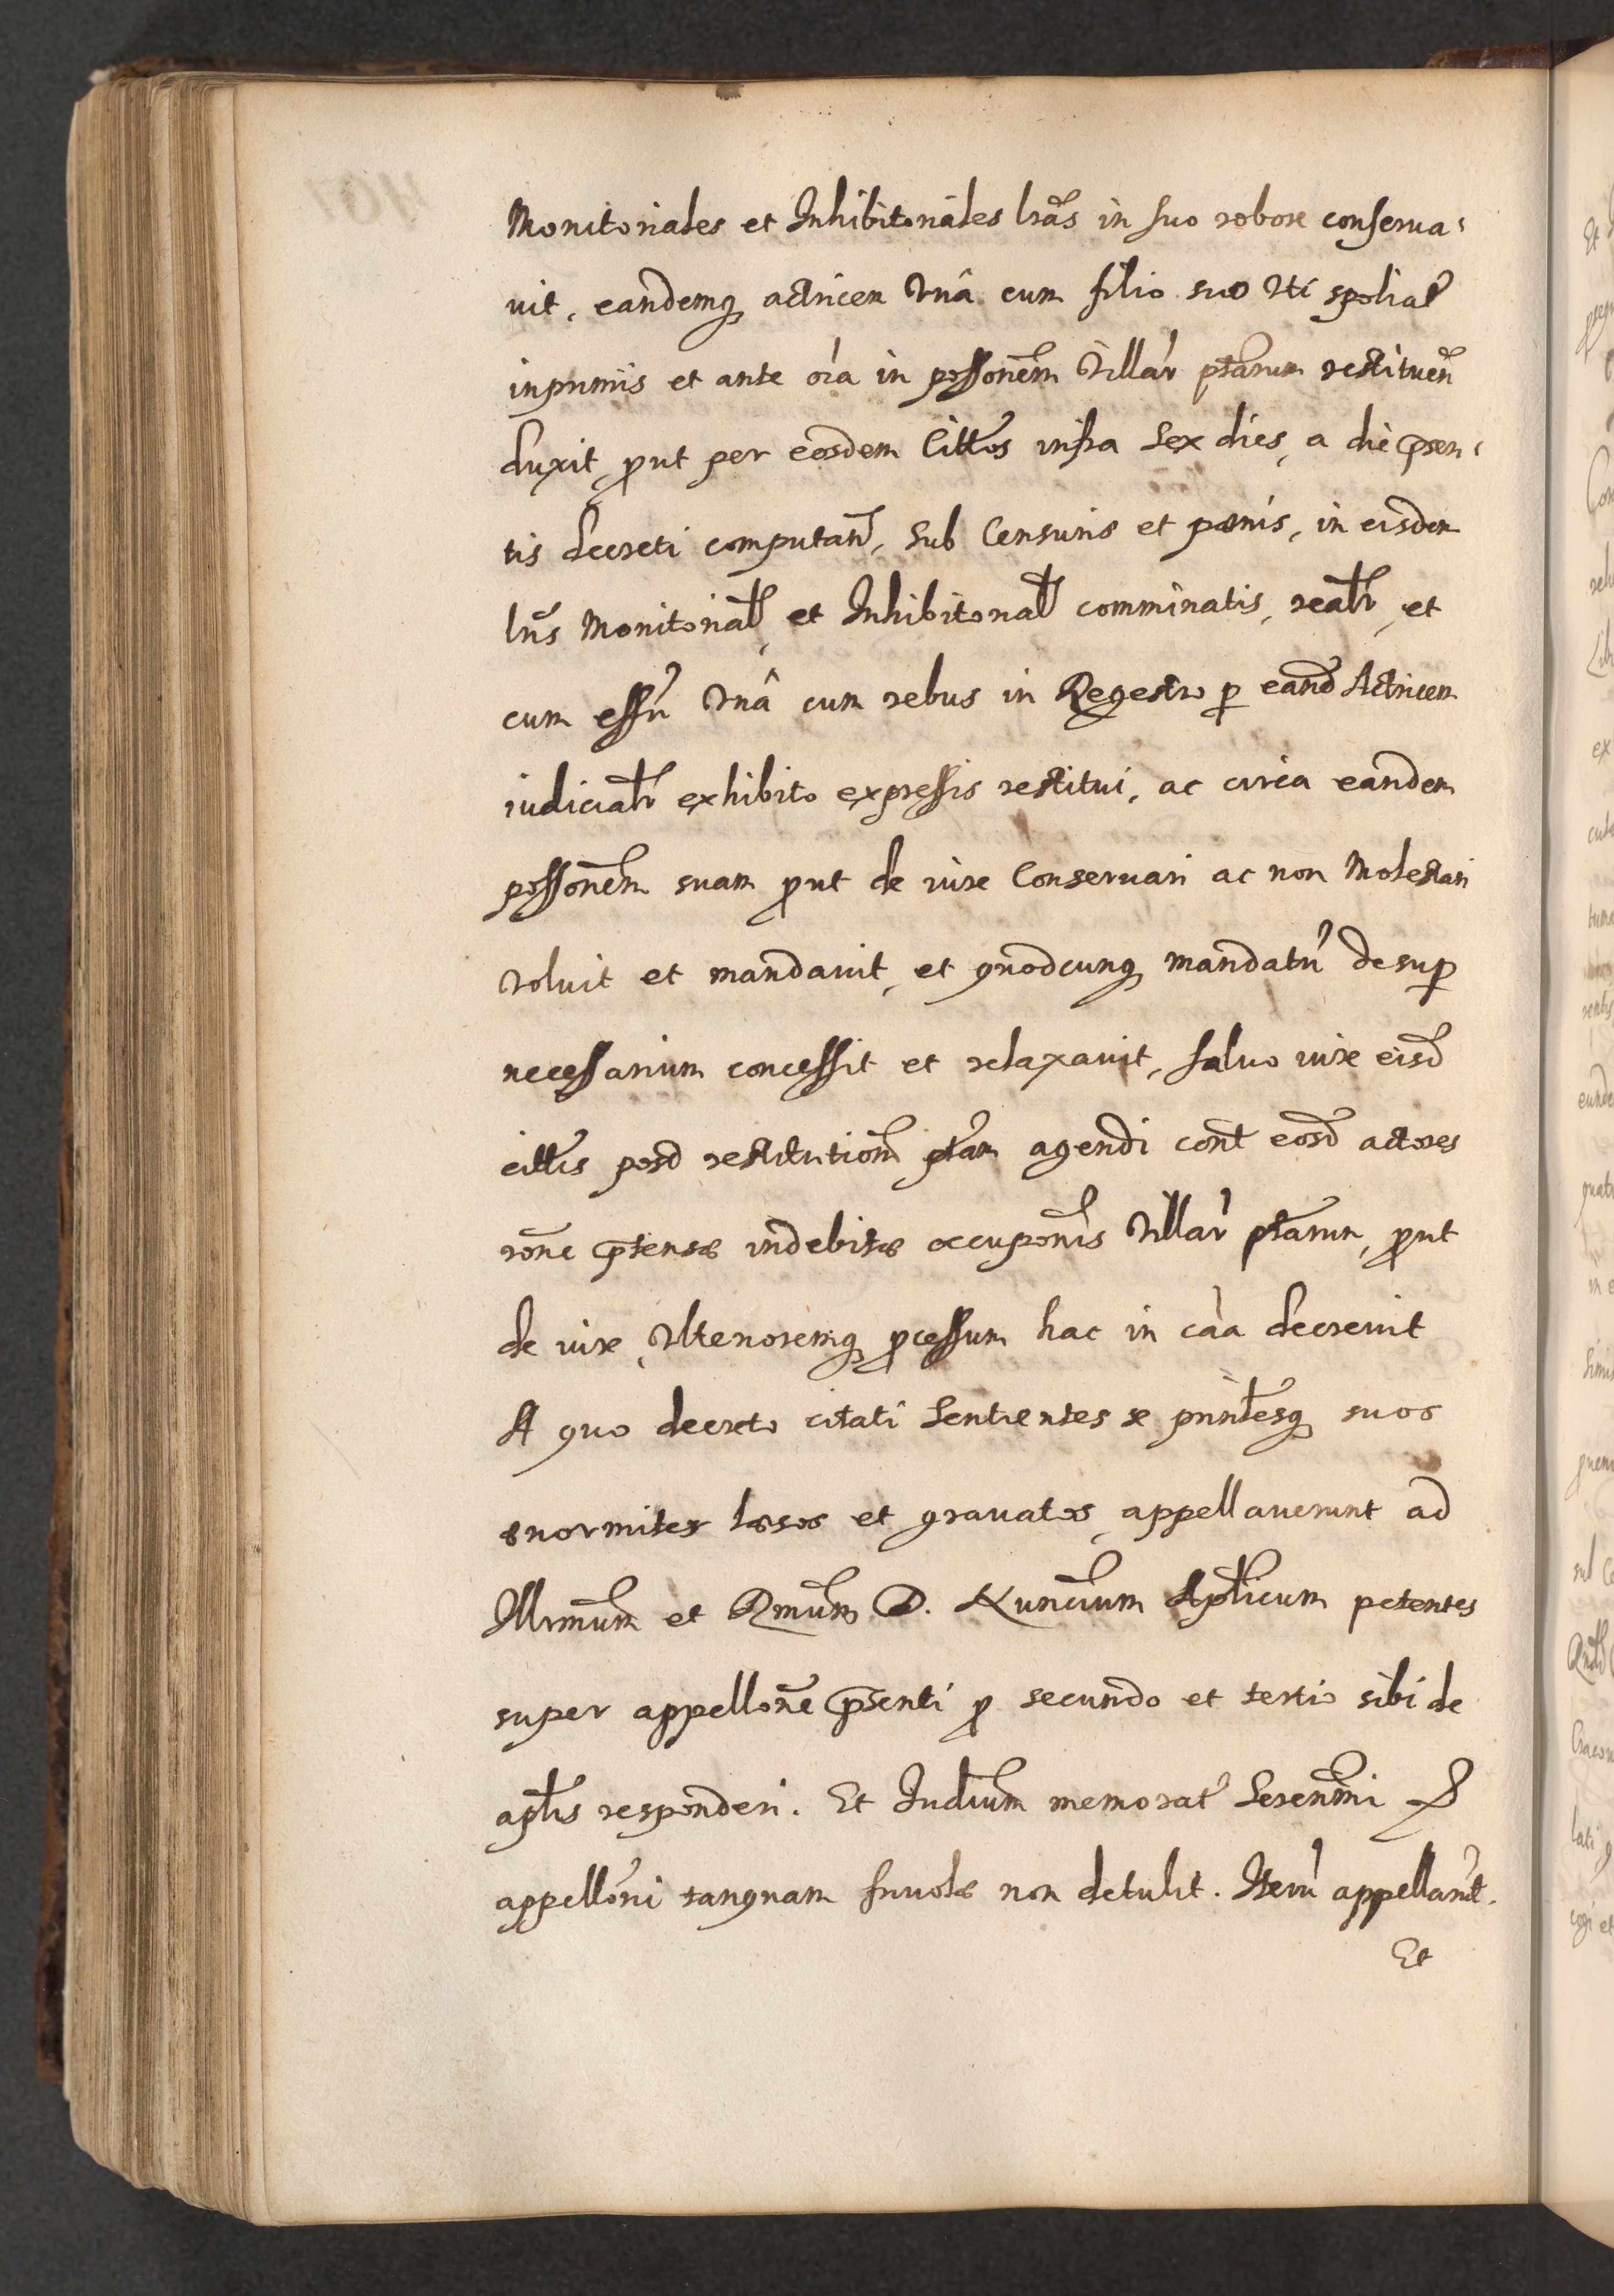 Monitoriales et Inhibitoriales lrãs in suo robore conserua-
uit, eandemq actricem vnâ cum filio suo vti spoliat
inprimis et ante oia in possonem villar ptarum restituen
duxit, prout per eosdem Cittos infra sex dies, a die presen-
tis decreti computan, sub Censuris et pœnis, in eisdem
lris Monitorial, et Inhibitorial comminatis, realr, et
cum effu vnâ cum rebus in Regestro p eand Actricem
iudicialr exhibito expressis restitui, ac circa eandem
possonem suam prout de iure Conseruari ac non Molestari
voluit et mandauit, et quodcunq mandatũ desup
necessarium concessit et relaxauit, saluo iure eisd
cittis post restitutionem ptam agendi cont eosd actores
rone prtensæ indebitæ occuponis villar ptarum, prout
de iure, vlterioremq processum hac in caa decreuit
A quo decreto citati sentientes se prinlesq suos
enormiter læsos et grauatos, appellauerunt ad
Illrmum et Rmum D. Nuncium Aplicum petentes
super appellone prsenti pro secundo et tertio sibi de
aplis responderi. Et Iudicium memorat Serenmi &
appelloni tanquam friuolæ non detulit. Iterũ appellarũt.
Et
401